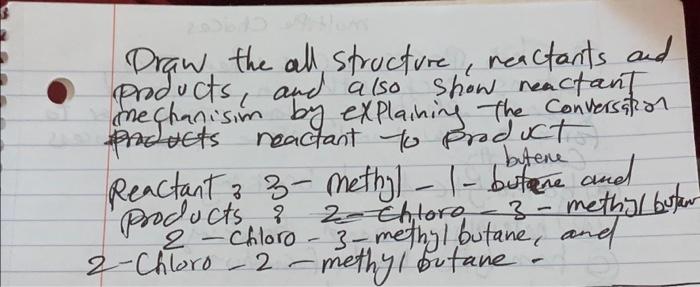 Draw the all structure, reactants and
products, and also show reactant
mechanisim by explaining the conversation
products reactant to product
butene
Reactant : 3 - methyl - 1 - butane and
products : 2 - Chloro - 3 - methyl butan
2 - chloro - 3 - methyl butane, and
2 - Chloro - 2 - methyl butane -